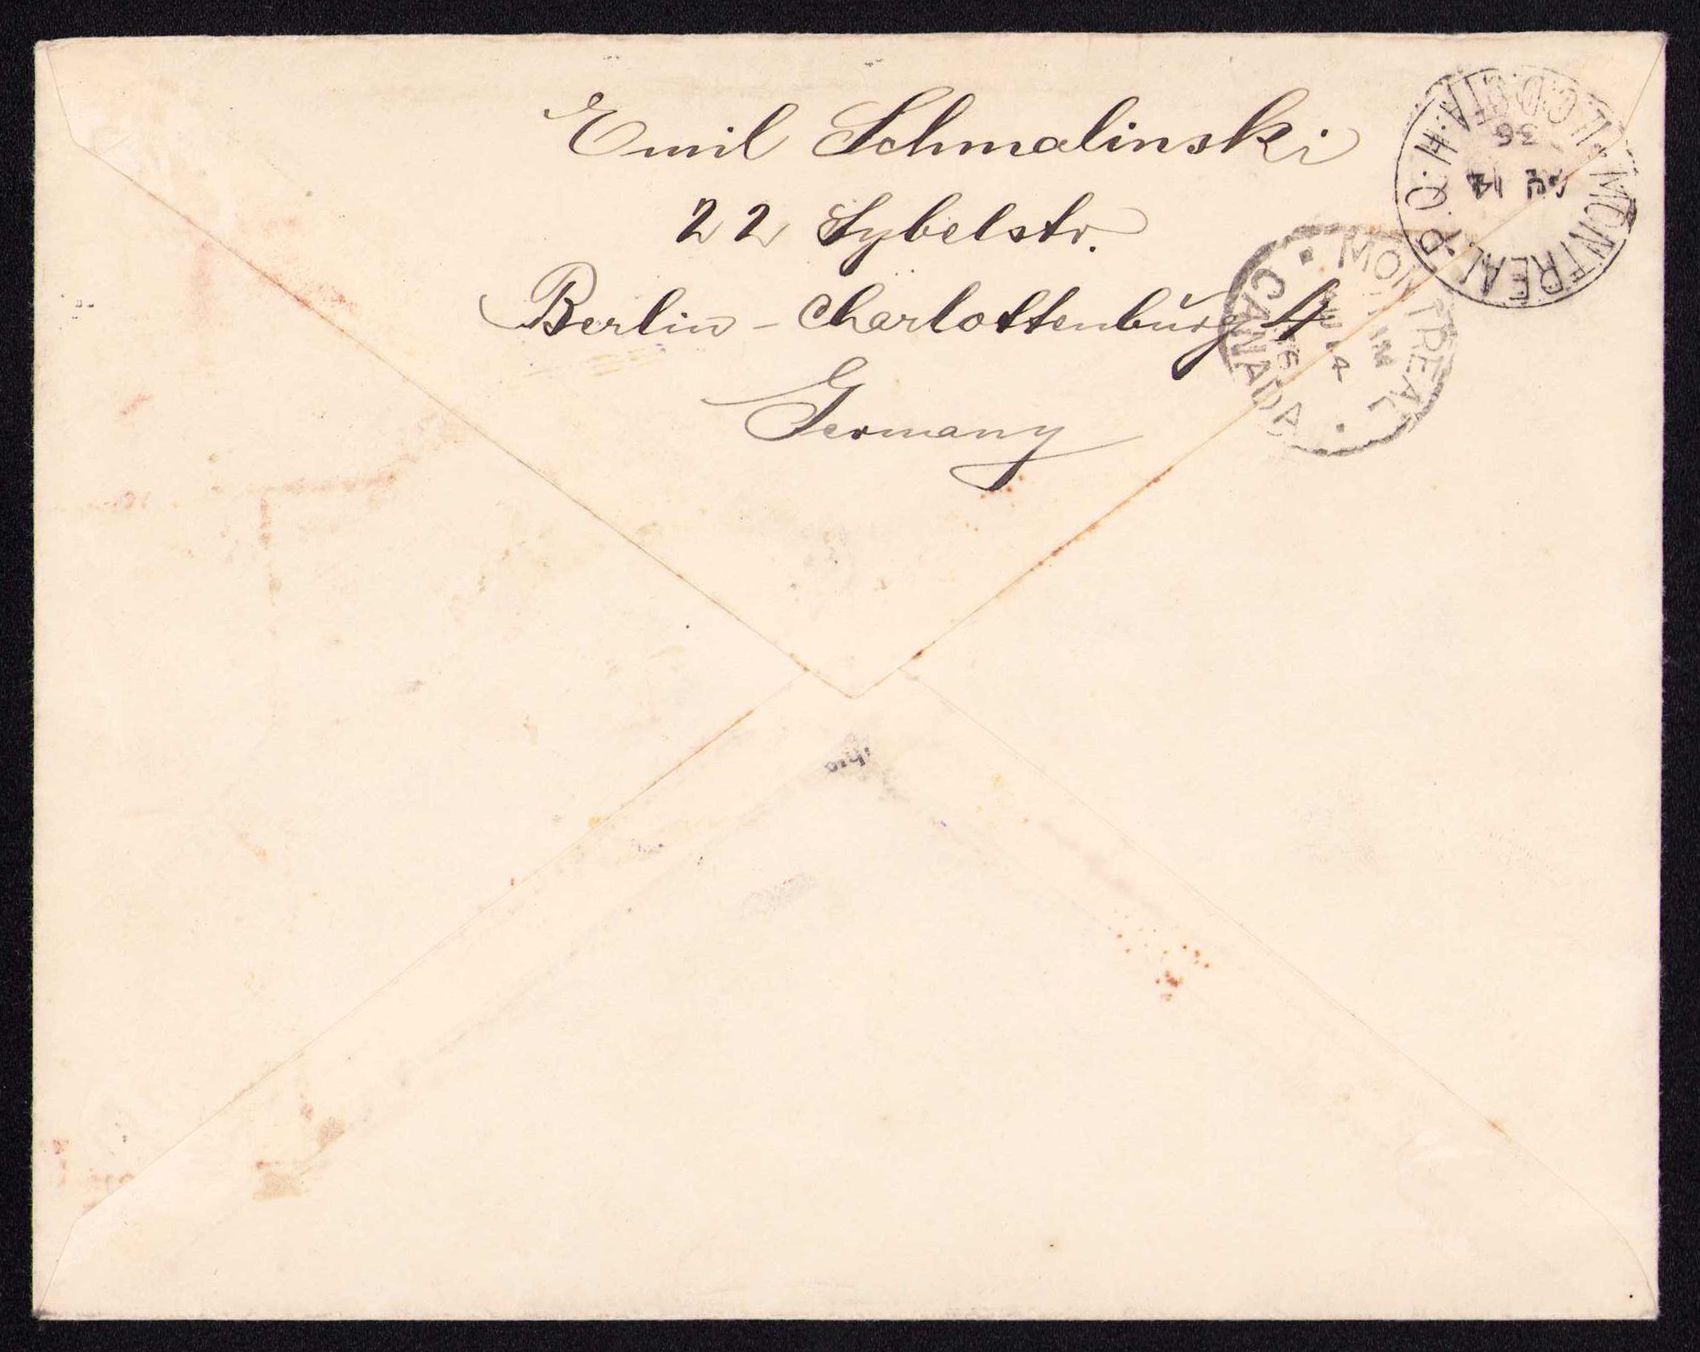 Emil Schmalinski
22 Sybelstr.
Berlin - Charlottenburg 4
Germany
MONTREAL P.Q.
14
36
MONTREAL
CANADA